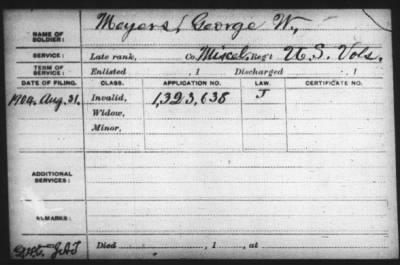 NAME OF SOLDIER: Meyers, George W.,
SERVICE: Late rank, Co. Miscel. Reg't U.S. Vols,
TERM OF SERVICE: Enlisted , 1 Discharged , 1
DATE OF FILING. CLASS. APPLICATION NO. LAW. CERTIFICATE NO.
1904, Aug. 31. Invalid, 1,323,638 J
Widow,
Minor,
ADDITIONAL SERVICES:
REMARKS:
Died , 1 , at